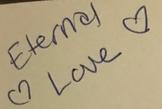 Eternal
Love